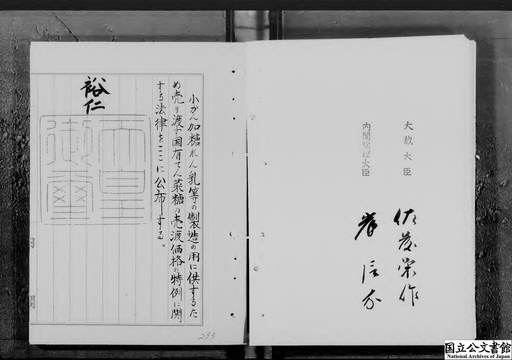 小かん加糖れん乳等の製造の用に供するた
め売り渡す国有てん菜糖の売渡価格の特例に関
する法律をここに公布する。
裕仁
天皇
御璽
大蔵大臣
佐藤栄作
内閣総理大臣
岸信介
253
国立公文書館
National Archives of Japan